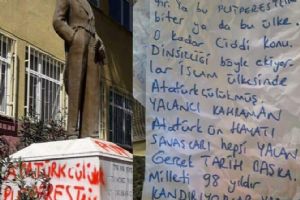 ATATÜRKÇÜLÜK
PUTPERESTLİK
ya bu PUTPERESTLİK
biter ya da bu ülke.
O kadar Ciddi konu.
DİNSİZLİĞİ böyle ekiyor-
lar İSLAM ülkesinde
Atatürkçülükmüş.
YALANCI KAHRAMAN
Atatürk ün HAYATI
SAVAŞLARI hepsi YALAN
Gerçek TARİH BAŞKA.
Milleti 98 yıldır
KANDIRIYORLAR